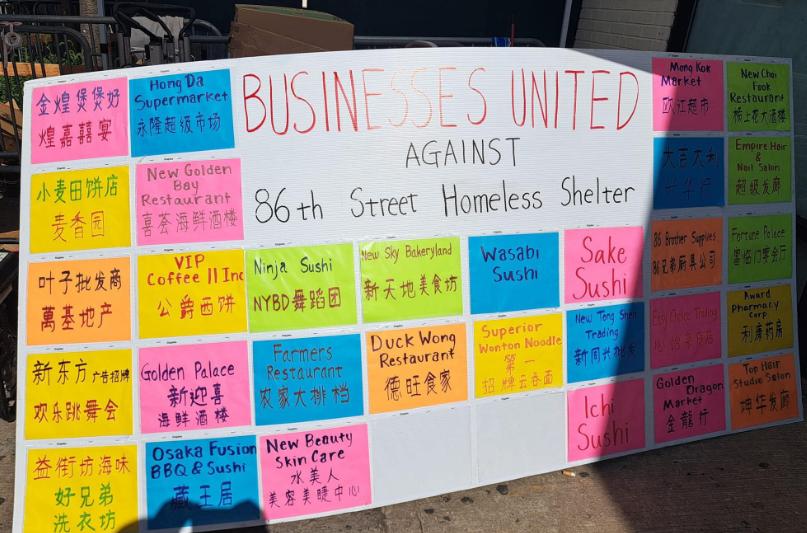 BUSINESSES UNITED
AGAINST
86th Street Homeless Shelter
金煌煲煲好
煌嘉囍宴
Hong Da
Supermarket
永隆超级市场
Mong Kok
Market
超市
New Choi
Fook
Restaurant
小麦田饼店
麦香园
New Golden
Bay
Restaurant
喜荟海鲜酒楼
大吉大利
Empire Hair
& Nail Salon
超级发廊
叶子批发商
萬基地产
VIP
Coffee II Inc
公爵西饼
Ninja Sushi
NYBD舞蹈团
New Sky Bakeryland
新天地美食坊
Wasabi
Sushi
Sake
Sushi
86 Brother Supplies
86兄弟厨具公司
Fortune Palace
新东方广告招牌
欢乐跳舞会
Golden Palace
新迎喜
海鲜酒楼
Farmers
Restaurant
农家大排档
Duck Wong
Restaurant
德旺食家
Superior
Wonton Noodle
第一
招牌云吞面
New Tong Shen
Trading
Trading
Award
Pharmacy
Corp
利康药房
益街坊海味
好兄弟
洗衣坊
Osaka Fusion
BBQ & Sushi
藏王居
New Beauty
Skin Care
水美人
美容美睫中心
Ichi
Sushi
Golden
Dragon
Market
金龍行
Top Hair
Studio Salon
坤华发廊